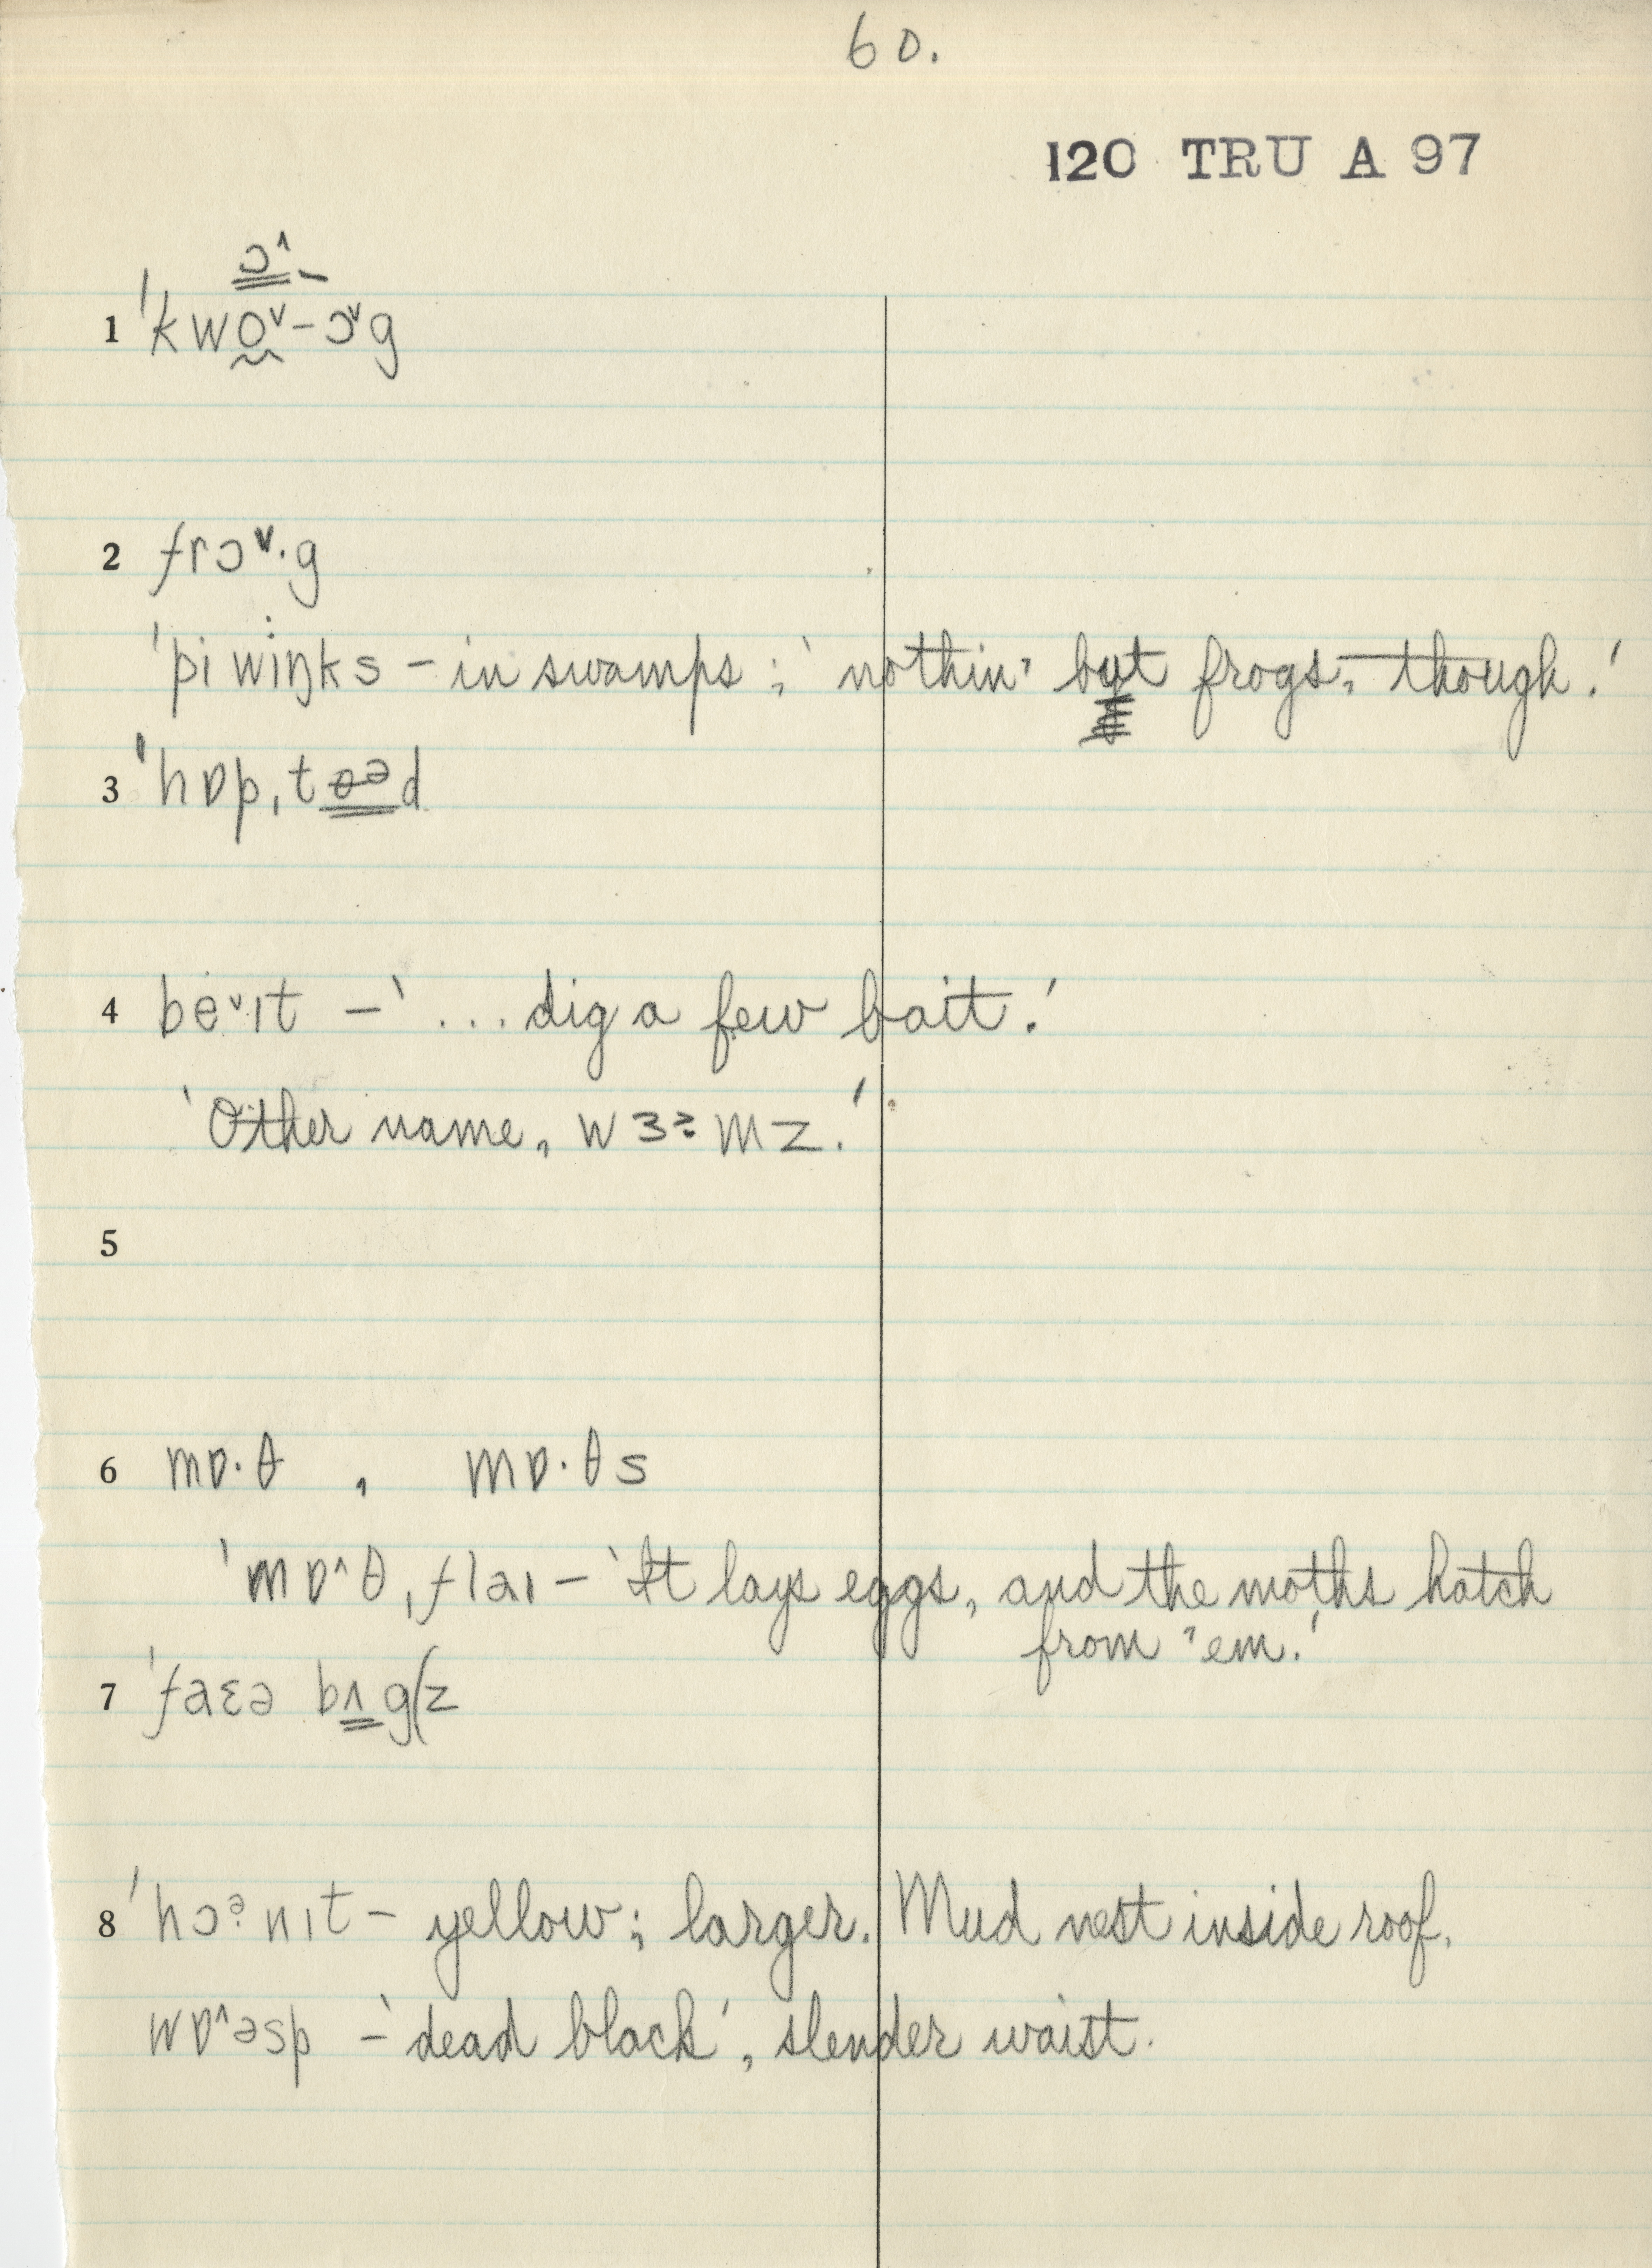 60.
120 TRU A 97
ɔ^-
1 'kwo˅-ɔ˅g
2 frɔ˅·g
'piwiŋks – in swamps; 'nothin' but frogs, though.'
3 'hɒpˌtɵəd
4 be˅ɪt – '... dig a few bait.'
'Other name, wɜɚmz.'
5
6 mɒ·θ, mɒ·θs
'mɒ^θˌflaɪ – 'It lays eggs, and the moths hatch
from 'em.'
7 'faɛə bʌg(z
8 'hɔɚnɪt – yellow; larger. Mud nest inside roof.
wɒ^əsp – 'dead black', slender waist.